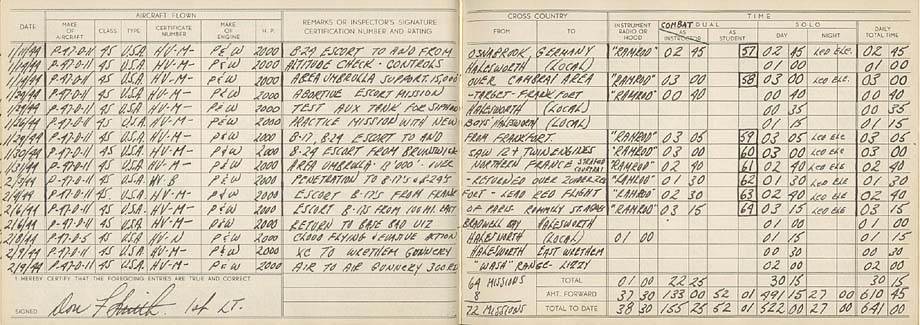 AIRCRAFT FLOWN
DATE MAKE OF AIRCRAFT CLASS TYPE CERTIFICATE NUMBER MAKE OF ENGINE H.P. REMARKS OR INSPECTOR'S SIGNATURE CERTIFICATION NUMBER AND RATING
1/11/44 P-47-D-11 4S U.S.A. HV-M- P&W 2000 B-24 ESCORT TO AND FROM
P-47-D-11 4S U.S.A. HV-M- P&W 2000 ALTITUDE CHECK - CONTROLS
P-47-D-11 4S U.S.A. HV-M- P&W 2000 AREA UMBRELLA SUPPORT.
P-47-D-11 4S U.S.A. HV-M- P&W 2000 ABORTIVE ESCORT MISSION
P-47-D-11 4S U.S.A. HV-M- P&W 2000 TEST AUX TANK FOR
1/26/44 P-47-D-11 4S U.S.A. HV-M- P&W 2000 PRACTICE MISSION WITH NEW
1/29/44 P-47-D-11 4S U.S.A. HV-M- P&W 2000 B-17, B-24 ESCORT TO AND
1/30/44 P-47-D-11 4S U.S.A. HV-M- P&W 2000 B-24 ESCORT FROM BRUNSWICK
1/31/44 P-47-D-11 4S U.S.A. HV-M- P&W 2000 AREA UMBRELLA OVER
P-47-D-11 4S U.S.A. HV-B P&W 2000 PENETRATION TO B-17S & B-24S
P-47-D-11 4S U.S.A. HV-M- P&W 2000 ESCORT B-17S FROM FRANK
2/6/44 P-47-D-11 4S U.S.A. HV-M- P&W 2000 ESCORT B-17S FROM
2/6/44 P-47-D-11 4S U.S.A. HV-M- P&W 2000 RETURN TO BASE BAD VIZ
2/8/44 P-47-D-5 4S U.S.A. HV-N P&W 2000 CLOUD FLYING & EVASIVE ACTION
2/9/44 P-47-D-11 4S U.S.A. HV-M- P&W 2000 XC TO WRETHEM GUNNERY
2/9/44 P-47-D-11 4S U.S.A. HV-M- P&W 2000 AIR TO AIR GUNNERY
I HEREBY CERTIFY THAT THE FOREGOING ENTRIES ARE TRUE AND CORRECT.
SIGNED Don Smith 1st LT.
CROSS COUNTRY TIME
FROM TO INSTRUMENT RADIO OR HOOD COMBAT DUAL AS INSTRUCTOR AS STUDENT SOLO DAY NIGHT DAILY TOTAL TIME
OSNABROOK, GERMANY "RAMROD" 02 45 57 02 45 LEO ELE. 02 45
HALESWORTH (LOCAL) 01 00 01 00
OVER CAMBRAI AREA "RAMROD" 03 00 58 03 00 LEO ELE. 03 00
-TARGET- FRANKFORT "RAMROD" 00 40 00 40 00 40
HALESWORTH (LOCAL) 00 35 00 35
BOYS HALESWORTH (LOCAL) 01 15 01 15
FROM FRANKFORT "RAMROD" 03 05 59 03 05 LEO ELE 03 05
SAW 12+ TWIN ENGINES "RAMROD" 03 00 60 03 00 LEO ELE 03 00
NORTHERN FRANCE "RAMROD" 02 40 61 02 40 LEO ELE 02 40
-RETURNED OVER "RAMROD" 01 30 62 01 30 LEO ELE 01 30
FORT - LEAD RED FLIGHT "RAMROD" 02 30 63 02 40 LEO ELE 02 40
OF PARIS ROMILLY "RAMROD" 03 15 64 03 15 LEO ELE 03 15
BRADWELL BAY HALESWORTH 01 00 01 00
HALESWORTH (LOCAL) 01 00 01 15 01 15
HALESWORTH EAST WRETHEM 00 30 00 30
"WASH" RANGE- 02 00 02 00
64 MISSIONS TOTAL 01 00 22 25 30 15 30 15
8 AMT. FORWARD 37 30 133 00 52 01 491 15 27 00 610 45
72 MISSIONS TOTAL TO DATE 38 30 155 25 52 01 522 00 27 00 641 00